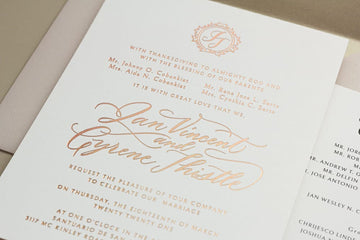 WITH THANKSGIVING TO ALMIGHTY GOD AND
WITH THE BLESSING OF OUR PARENTS
Mr. Johnny O. Cabankiet
Mrs. Aida N. Cabankiet
Mr. Rene Jose L. Serle
Mrs. Cynthia C. Serce
IT IS WITH GREAT LOVE THAT WE,
Jan Vincent
and
Cyrene Thistle
REQUEST THE PLEASURE OF YOUR COMPANY
TO CELEBRATE OUR MARRIAGE
ON THURSDAY, THE EIGHTEENTH OF MARCH
TWENTY TWENTY ONE
AT ONE O'CLOCK IN THE
SANTUARIO DE SAN
3117 MC KINLEY ROAD
MR. JORG
MR. R
MR. ANDREW T.
MR. DELFIN
JOSE ANTONIO
JAN WESLEY N. C
CHRIJESCO LIND
JOSHUA N